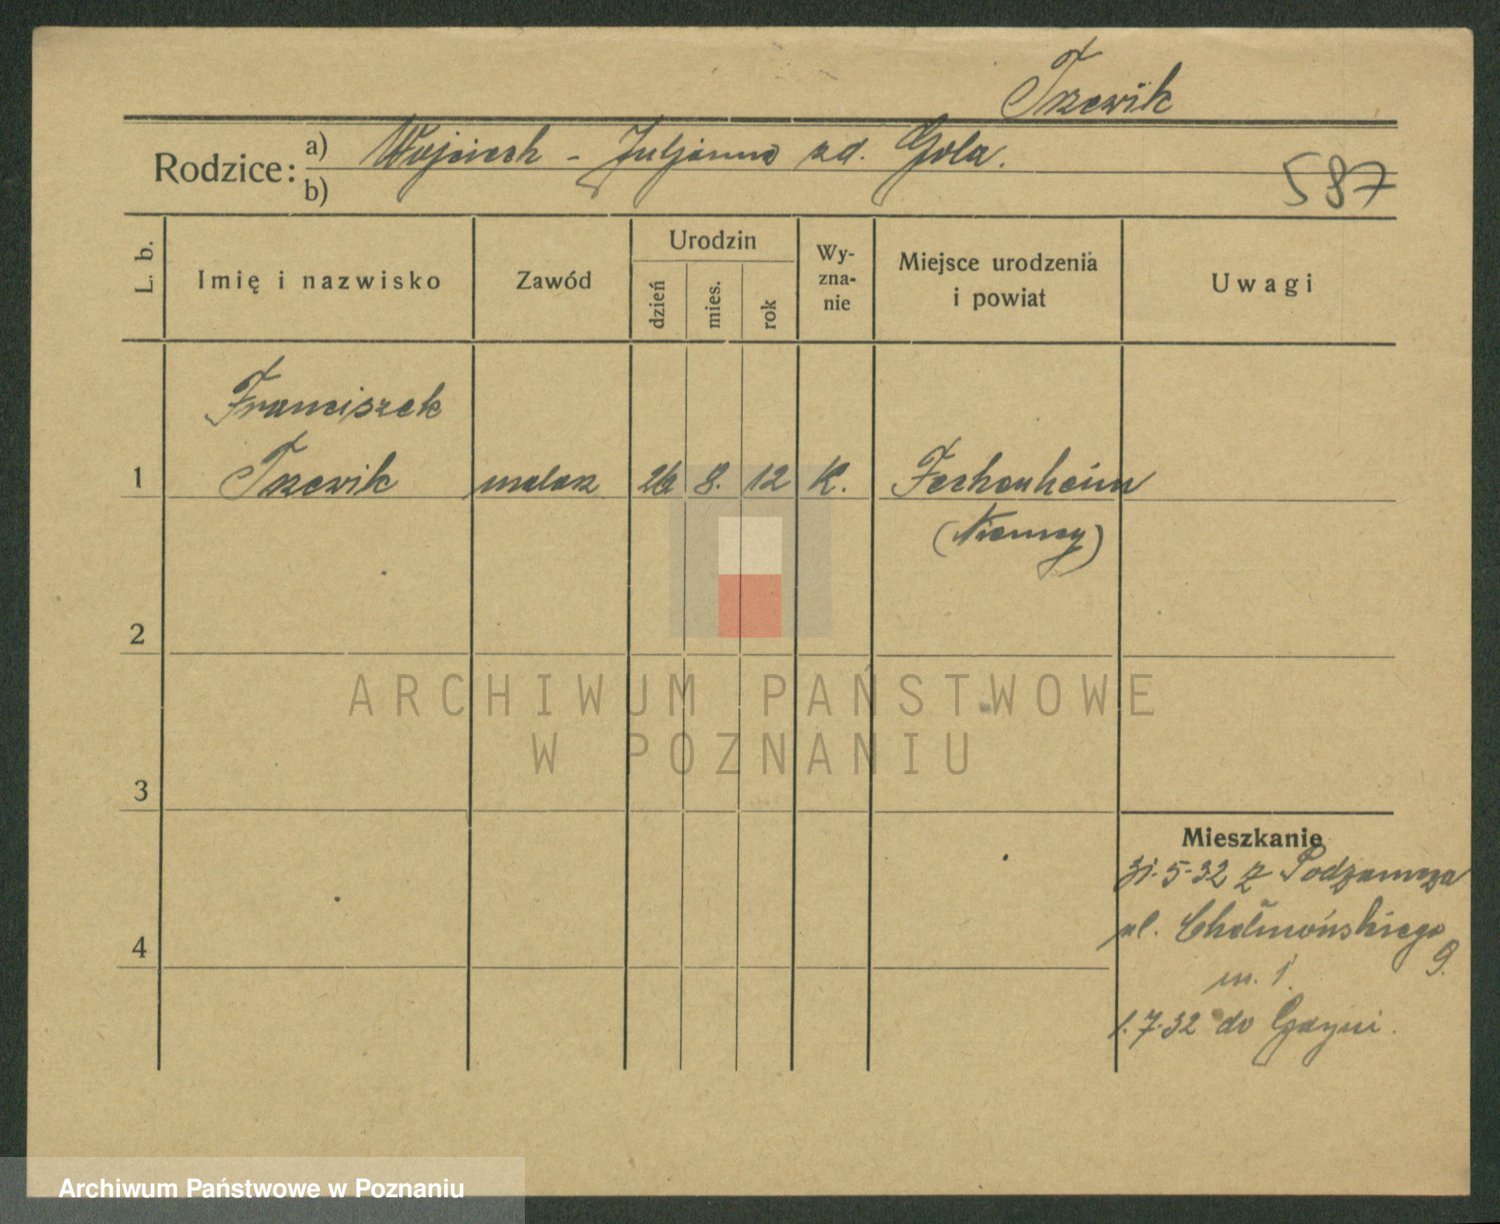 Trzewik
Rodzice: a) Wojciech - Juljanna zd. Gola.
b)
587
L. b.
Imię i nazwisko
Zawód
Urodzin
dzień
mies.
rok
Wy-
zna-
nie
Miejsce urodzenia
i powiat
Uwagi
Franciszek
1 Trzewik malarz 26 8. 12 K. Fechenheim
(Niemcy)
2
ARCHIWUM PAŃSTWOWE
W POZNANIU
3
Mieszkanie
31.5.32 z Podzamcza
ul. Chełmońskiego
4
9.
m. 1.
1.7.32 do Gdyni.
Archiwum Państwowe w Poznaniu